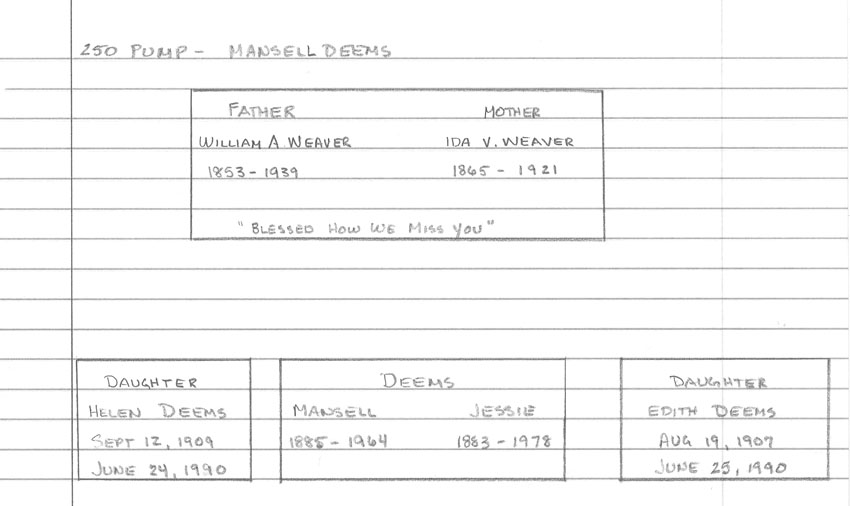 250 PUMP - MANSELL DEEMS
FATHER MOTHER
WILLIAM A. WEAVER IDA V. WEAVER
1853 - 1939 1865 - 1921
"BLESSED HOW WE MISS YOU"
DAUGHTER
HELEN DEEMS
SEPT 12, 1909
JUNE 24, 1990
DEEMS
MANSELL JESSIE
1885 - 1964 1883 - 1978
DAUGHTER
EDITH DEEMS
AUG 19, 1907
JUNE 25, 1990